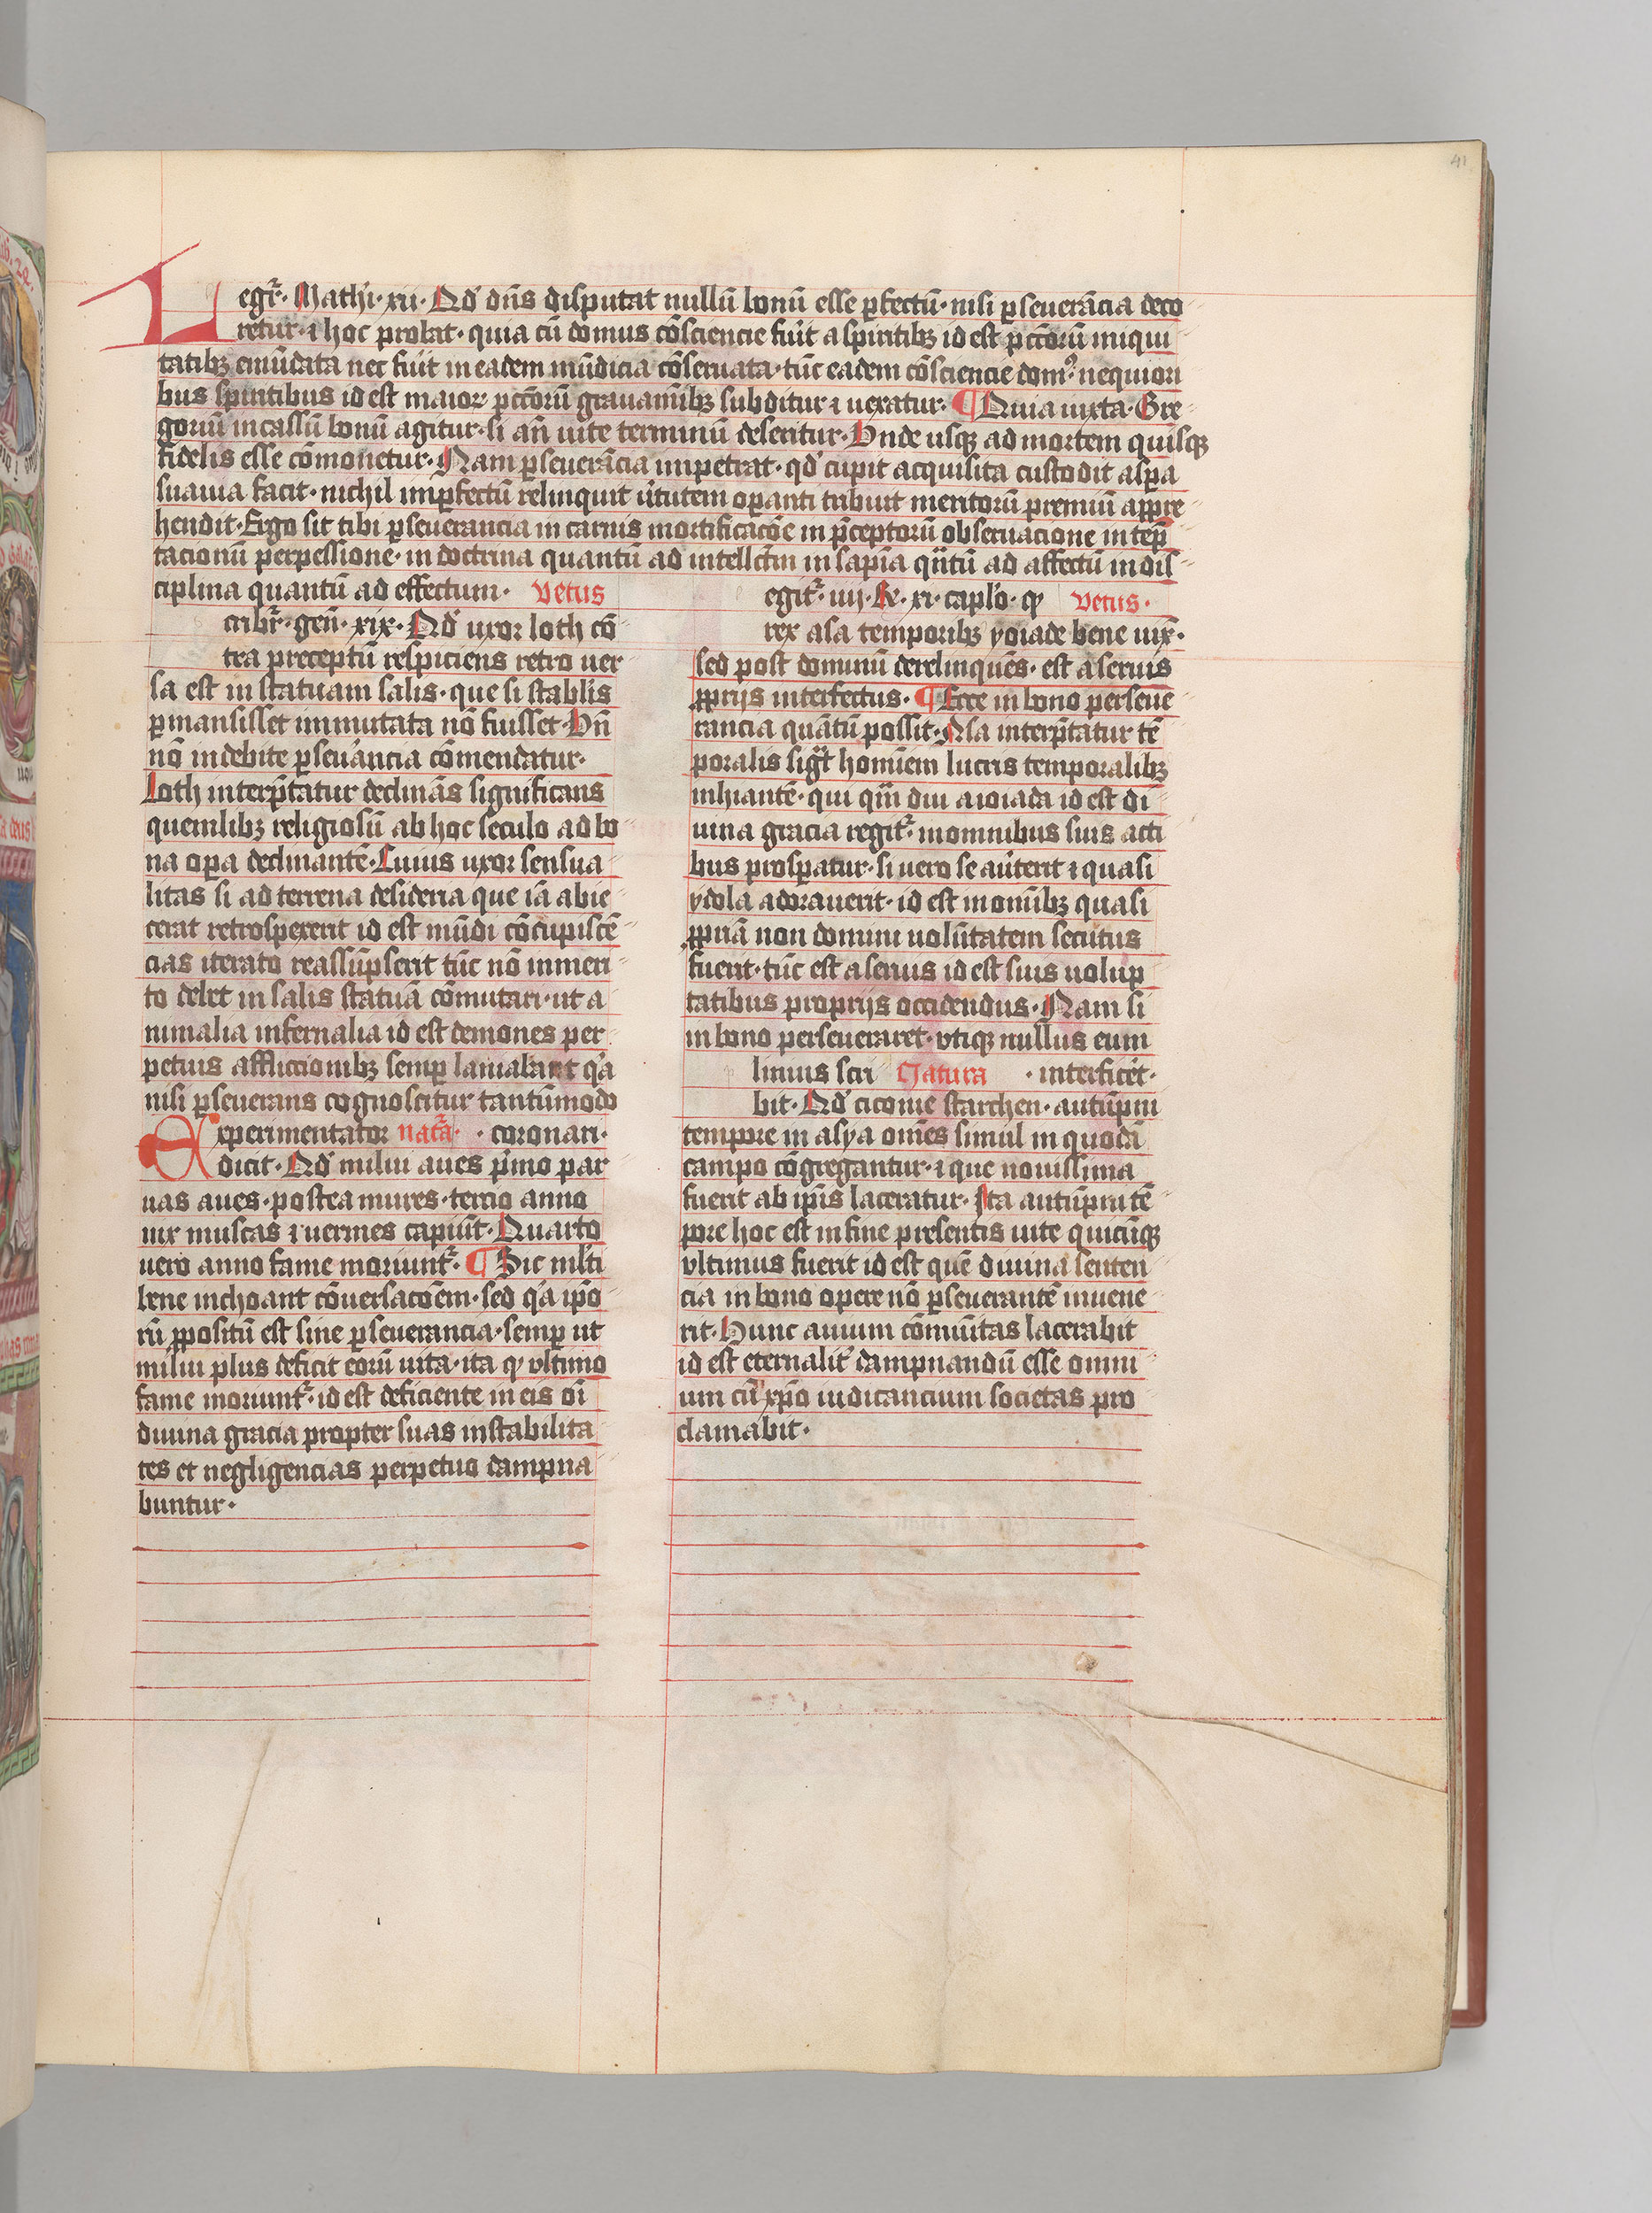 41
Legit᷑ · Mathi · xii · Qd' dn̄s disputat nullū bonū esse ꝑfectū · nisi ꝑseuerācia deco
retur · ⁊ hoc probat · quia cū domus cōsciencie fu̾it a spiritibꝫ id est pcc̄orū iniqui
tatibꝫ emūdata nec fu̾it in eadem mūdicia cōseruata · tūc eadem cōsciencie domꝰ nequiori
bus spiritibus id est maior pcc̄orū grauaminibꝫ subditur ⁊ uexatur · ¶ Quia iuxta · Gre
goriū incassū bonū agitur · si an̄ uite terminū deseritur · Vnde usqꝫ ad mortem quisqꝫ
fidelis esse cōmonetur · Nam ꝑseuerācia impetrat · qd' cupit acquisita custodit aspa
suauia facit · nichil imꝑfectū relinquit u̾tutem oꝑanti tribuit meritorū premiū appre
hendit · Ergo sit tibi ꝑseuerancia in carnis mortificacōe in p̄ceptorū obseruacione in tēp
tacionū perpessione · in doctrina quantū ad intellc̄m in sapīa qn̄tū ad affectū in dis
ciplina quantū ad effectum · vetus
cribit᷑ · gen̄ · xix · Qd' uxor loth cō
tra preceptū respiciens retro uer
sa est in statuam salis · que si stabl'is
ꝑmansisset immutata nō fuisset · Vn̄
nō indebite ꝑseu̾ancia cōmendatur ·
Loth interp̄tatur declinās significans
quemlibꝫ religiosū ab hoc seculo ad bo
na oꝑa declinantē · Cuius uxor sensua
litas si ad terrena desideria que iā abie
cerat retrospexerit id est mūdi cōcupiscē
cias iterato reassūpserit tūc nō inmeri
to debet in salis statuā cōmutari · ut a
nimalia infernalia id est demones per
petuis affliccionibꝫ semꝑ lamabant q'a
nisi ꝑseuerans cognoscitur tantūmodo
Experimentator nat᷑a · · coronari ·
dicit · Qd' milui aues p̄mo par
uas aues · postea mures · tercio anno
uix muscas ⁊ uermes capiūt · Quarto
uero anno fame moriunt᷑ · ¶ Sic ml'ti
bene inchoant cōuersacōem · sed q'a ipō
rū ꝓpositū est sine ꝑseuerancia · semꝑ ut
milui plus deficit eorū uita · ita ꝙ vltimo
fame moriunt᷑ · id est deficiente in eis oī
diuina gracia propter suas instabilita
tes et negligencias perpetuo dampna
buntur ·
egit᷑ · iiij · Re · xi · capl'o · ꝙ vetus ·
rex asa temporibꝫ yoiade bene uix̄ ·
sed post dominū derelinquēs · est a seruis
ꝓprijs interfectus · ¶ Ecce in bono perseue
rancia quātū possit · Asa interp̄tatur tē
poralis sigt᷑ hominem lucris temporalibꝫ
inhiantē · qui qm̄ diu a ioiada id est di
uina gracia regit᷑ · in omnibus suis acti
bus prosꝑatur · si uero se au̾terit ⁊ quasi
ydola adorauerit · id est in omībꝫ quasi
ꝓpriā non domini uolūtatem secutus
fuerit · tūc est a seruis id est suis uolup
tatibus proprijs occidendus · Nam si
in bono perseueraret · vtiqꝫ nullus eum
linius scri Natura · interficer̄et ·
bit · Qd' ciconie starchen · autūpni
tempore in asya om̄es simul in quodā
campo cōgregantur · ⁊ que nouissima
fuerit ab ip̄is laceratur · Ita autūpni tē
pore hoc est in fine presentis uite quicūqꝫ
vltimus fuerit id est quē diuina senten
cia in bono opere nō ꝑseuerantē inuene
rit · Hunc auium cōmu̾itas lacerabit
id est eternalit' dampnandū esse omni
um cū xp̄o iudicancium societas pro
clamabit ·